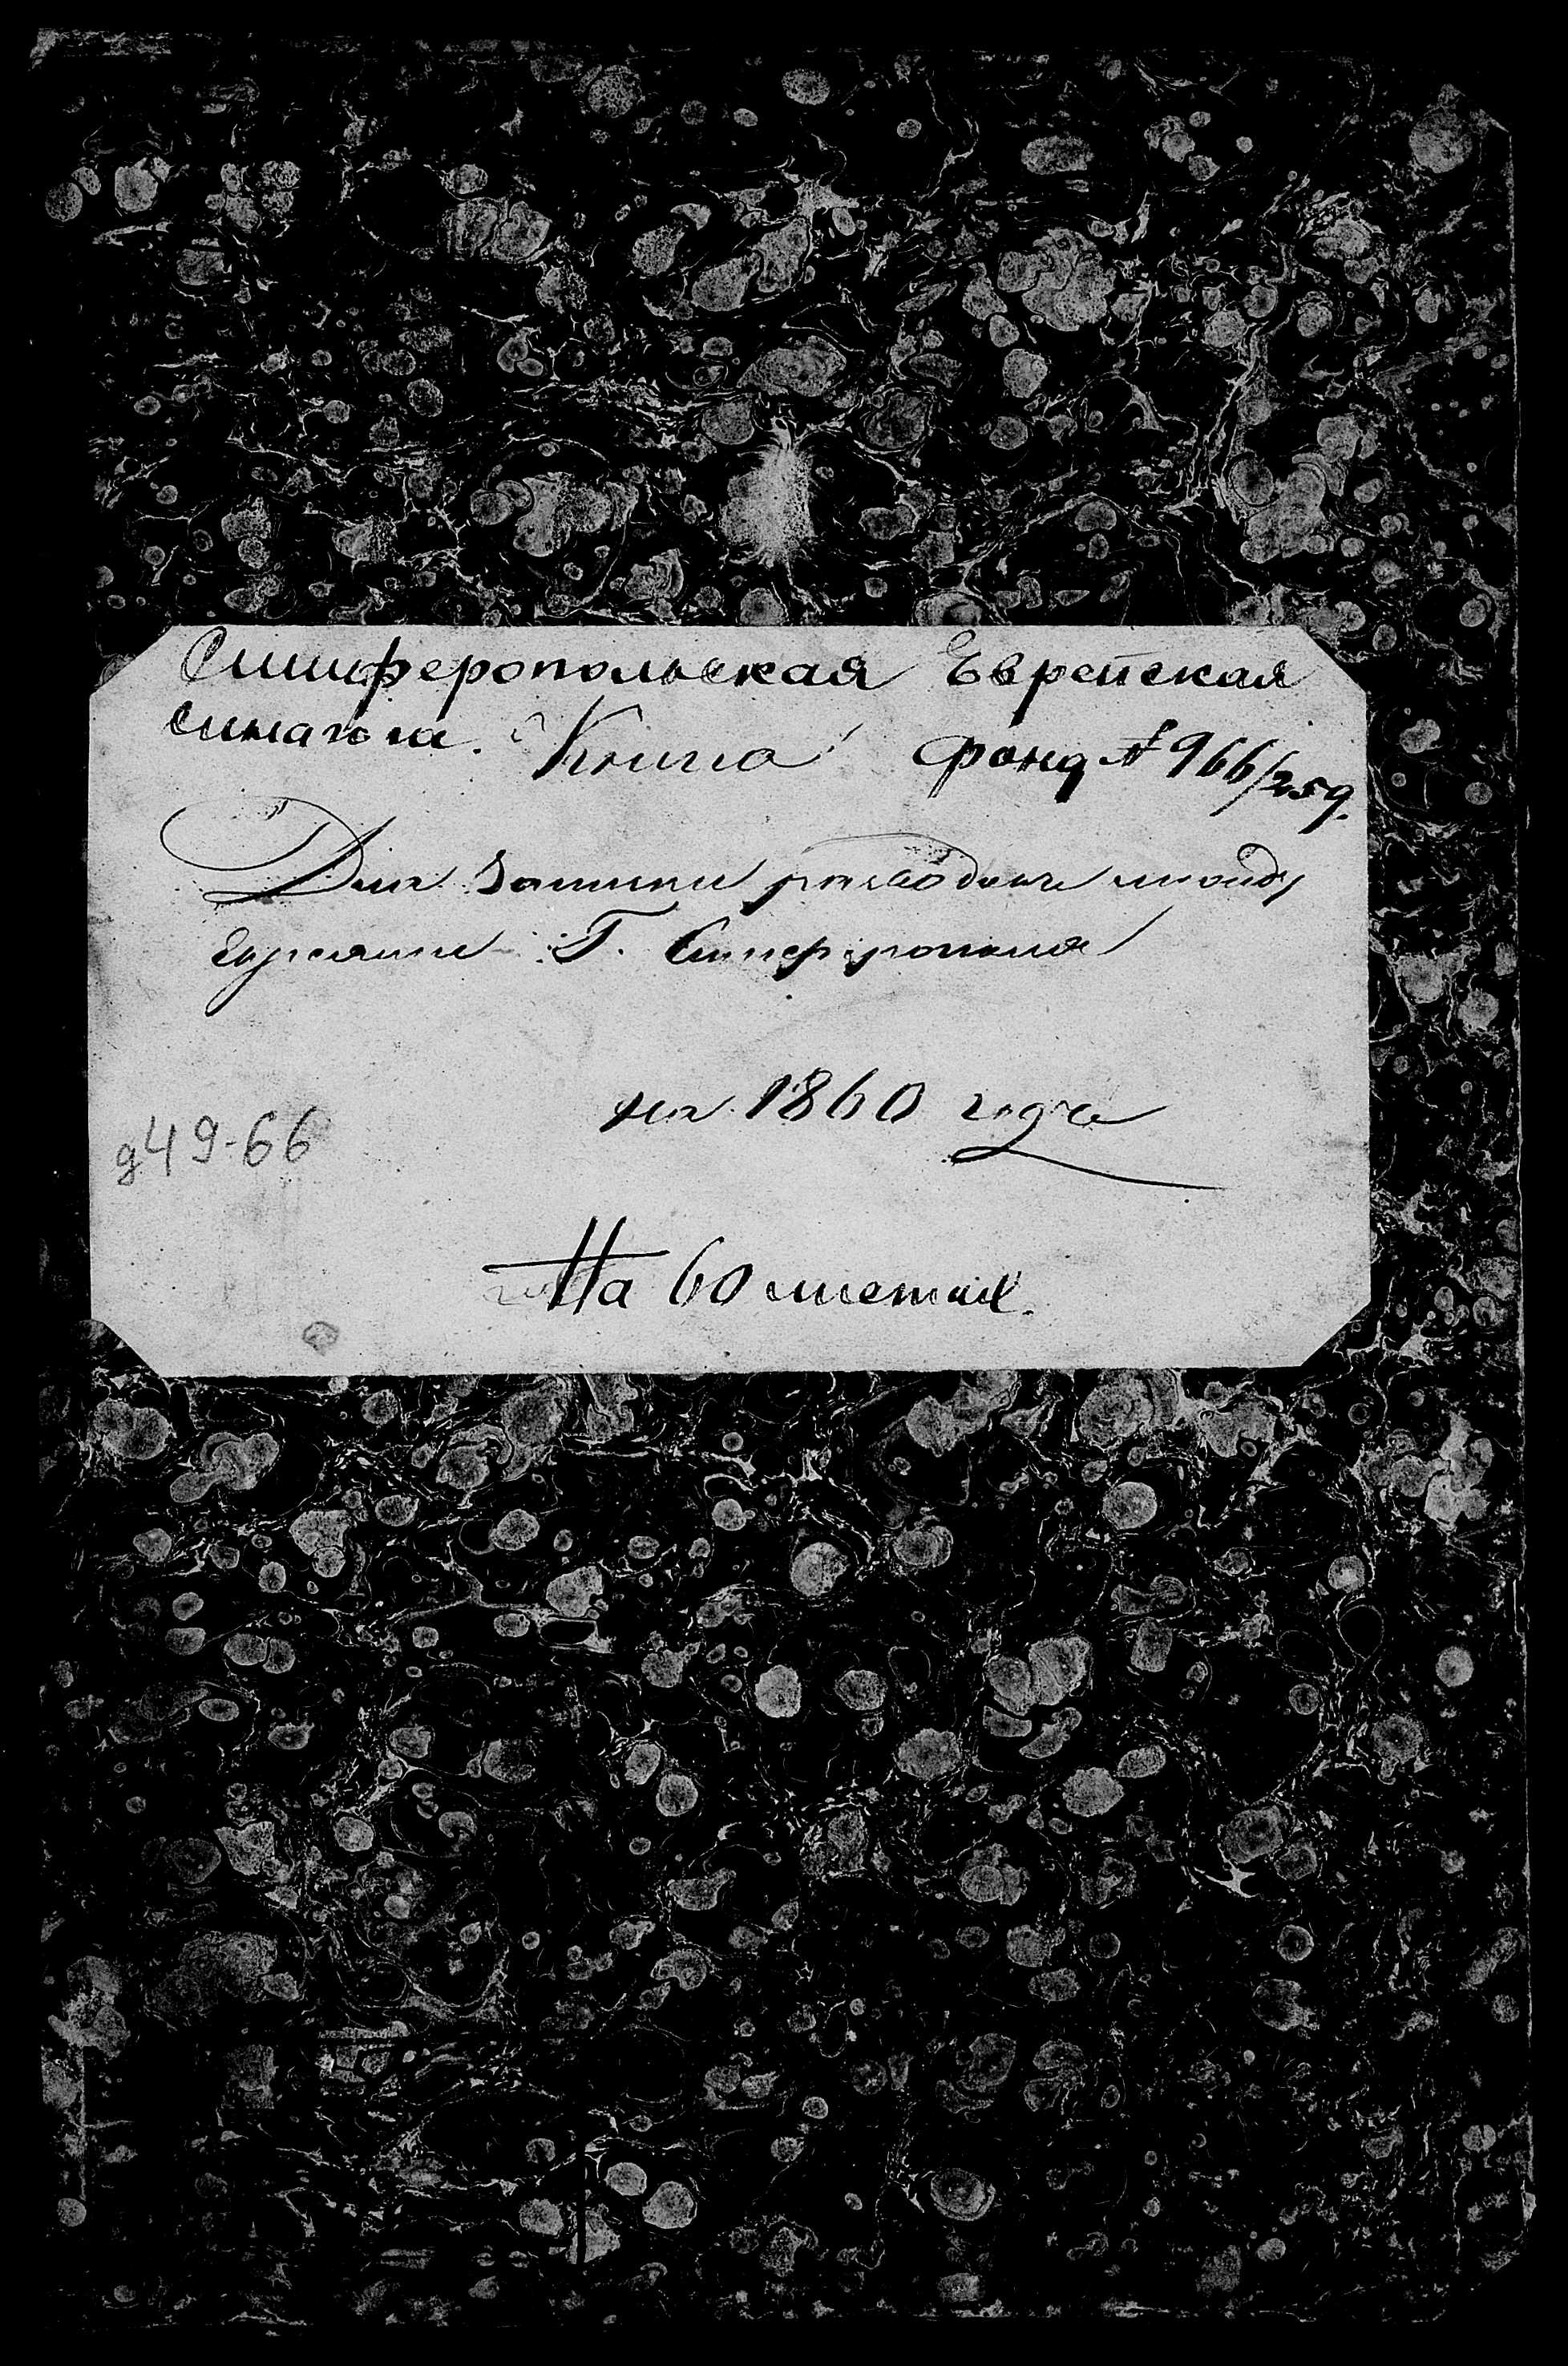 Симферопольская Еврейская
синагога. Книга фонд № 966/259.
Для записки разводовъ между
Евреями Г. Симферополя
на 1860 годъ
д49-66
На 60 листах.